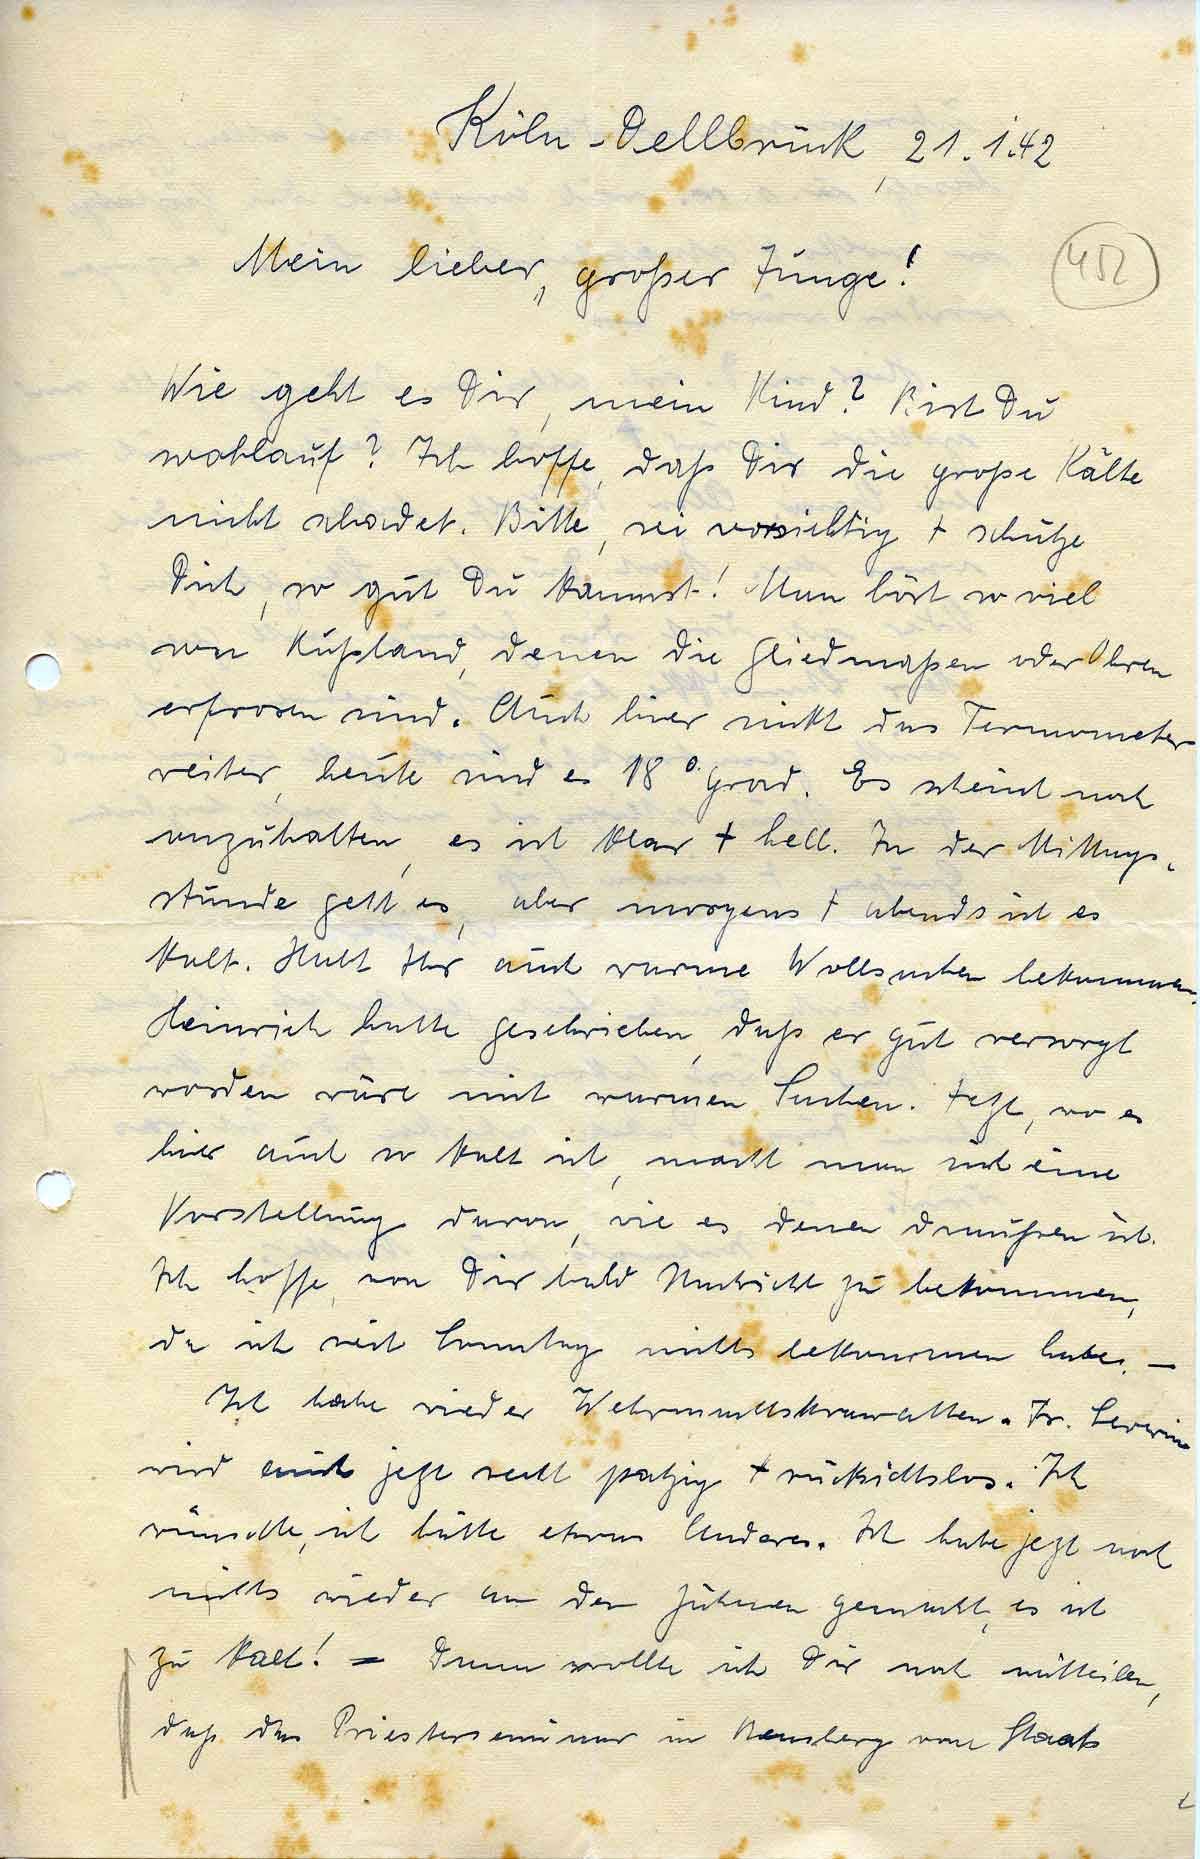 Köln-Dellbrück, 21.1.42
452
Mein lieber, großer Junge!
Wie geht es Dir, mein Kind? Bist Du
wohlauf? Ich hoffe, daß Dir die große Kälte
nicht schadet. Bitte, sei vorsichtig + schütze
Dich, so gut Du kannst! Man hört so viel
von Rußland, denen die Gliedmaßen oder Ohren
erfroren sind. Auch hier sinkt das Termometer
weiter, heute sind es 18° Grad. Es scheint noch
anzuhalten, es ist klar + hell. In der Mittags-
stunde geht es, aber morgens + abends ist es
kalt. Habt Ihr auch warme Wollsachen bekommen.
Heinrich hatte geschrieben, daß er gut versorgt
worden wäre mit warmen Sachen. Jetzt, wo es
hier auch so kalt ist, macht man sich eine
Vorstellung davon, wie es denen draußen ist.
Ich hoffe, von Dir bald Nachricht zu bekommen,
da ich seit Sonntag nichts bekommen habe. —
Ich habe wieder Wehrmachtskrawatten. Fr. Severin
wird auch jetzt recht patzig + rücksichtslos. Ich
wünschte, ich hätte etwas Anderes. Ich habe jetzt noch
nichts wieder an den Zähnen gemacht, es ist
zu kalt! — Dann wollte ich Dir noch mitteilen,
daß das Priesterseminar in Bensberg vom Staat